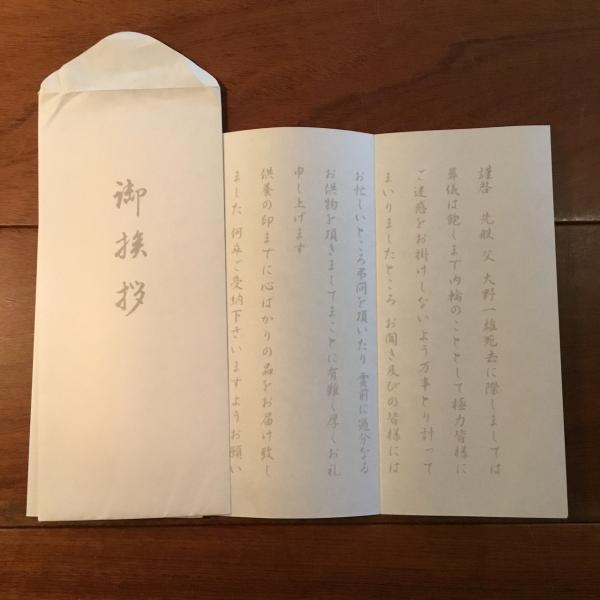 御挨拶
謹啓 先般 父 大野一雄死去に際しましては
葬儀は飽くまで内輪のこととして極力皆様に
ご迷惑をお掛けしないよう万事とり計って
まいりましたところ お聞き及びの皆様には
お忙しいところ弔問を頂いたり 霊前に過分なる
お供物を頂きましてまことに有難く厚くお礼
申し上げます
供養の印までに心ばかりの品をお届け致し
ました 何卒ご受納下さいますようお願い